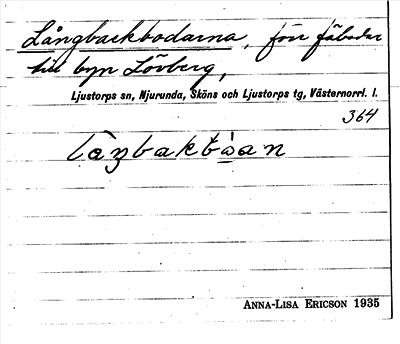 Långbackbodarna, förr fäbodar
till byn Lövberg,
Ljustorps sn, Njurunda, Sköns och Ljustorps tg, Västernorrl. l.
364
làŋbakbɷ̀an
ANNA-LISA ERICSON 1935